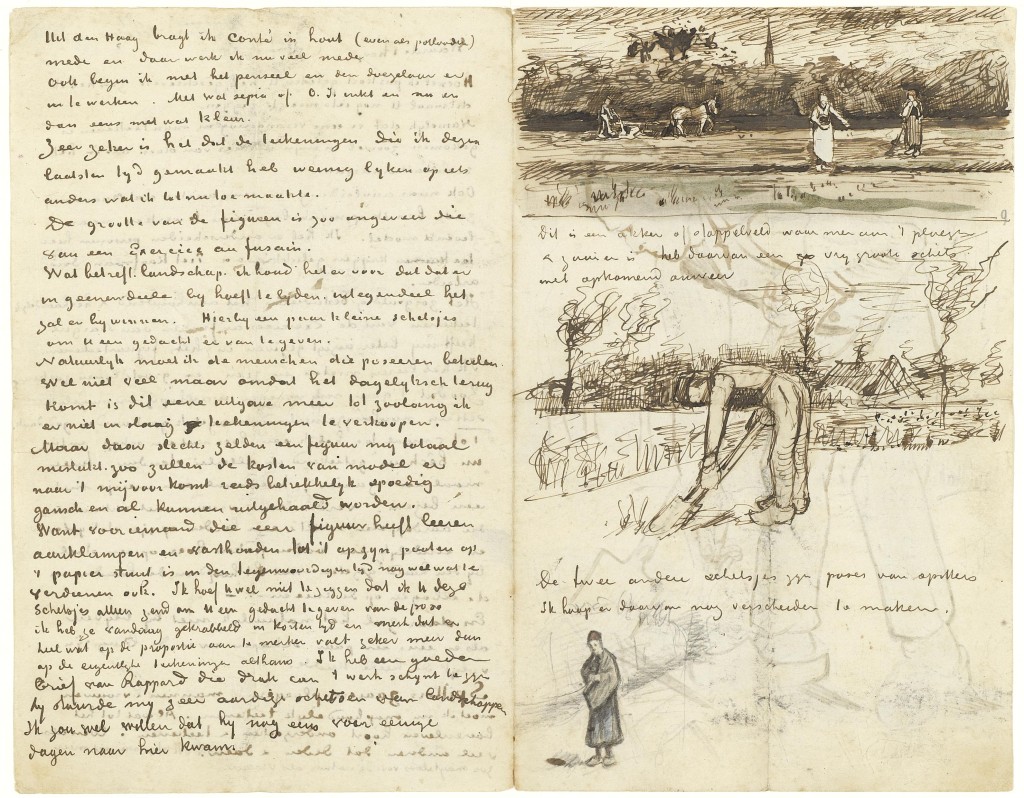 Uit den Haag bragt ik Conté in hout (even als potlooden)
mede en daar werk ik nu veel mede.
Ook begin ik met het penseel en den doezelaar er
in te werken. Met wat sepia of O.I. inkt en nu en
dan eens met wat kleur.
Zeer zeker is het dat de teekeningen die ik dezen
laatsten tyd gemaakt heb weinig lyken op iets
anders wat ik tot nu toe maakte.
De grootte van de figuren is zoo ongeveer die
van een Exercice au fusain.
Wat betreft landschap, ik houd het er voor dat dat er
in geenendeele by hoeft te lyden. integendeel het
zal er by winnen. Hierby een paar kleine schetsjes
om U een gedacht er van te geven.
Natuurlyk moet ik de menschen die poseeren betalen.
Wel niet veel maar omdat het dagelyksch terug
komt is dit eene uitgave meer tot zoolang ik
er niet in slaag teekeningen te verkoopen.
Maar daar slechts zelden een figuur my totaal
mislukt. zoo zullen de kosten van model er
naar 't mij voorkomt reeds betrekkelyk spoedig
gansch en al kunnen uitgehaald worden.
Want voor iemand die een figuur heeft leeren
aanklampen en vasthouden tot it op zyn pooten op
't papier staat is in den tegenwoordigen tyd nog wel wat te
verdienen ook. Ik hoef U wel niet te zeggen dat ik U deze
schetsjes alleen zend om U een gedacht te geven van de pose
ik heb ze vandaag gekrabbeld in korten tyd en merk dat er
heel wat op de proportie aan te merken valt zeker meer dan
op de eigentlyke teekeningen althans. Ik heb een goeden
brief van Rappard die druk aan 't werk schynt te zyn
hy stuurde my zeer aardige schetsen van landschappen
Ik zou wel willen dat hy nog eens voor eenige
dagen naar hier kwam.
Dit is een akker of stoppelveld waar men aan 't ploegen
& zaaien is heb daarvan een vry groote schets
met opkomend onweer
De twee andere schetsjes zyn poses van spitters
Ik hoop er daarvan nog verscheiden te maken.